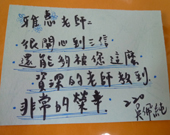 雅惠老師:
很開心到三信
還能夠被您這麼
資深的老師教到
非常的榮幸